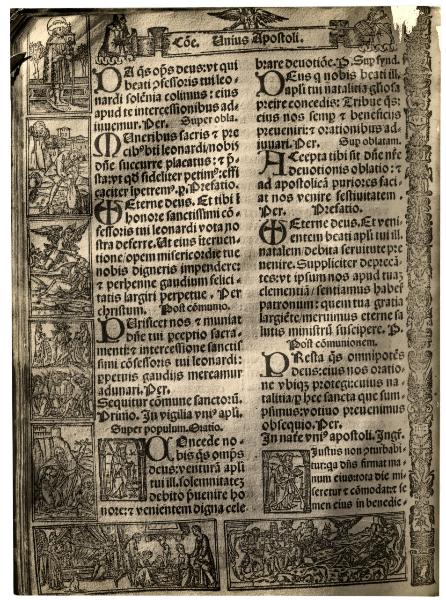 Cõe. Unius Apostoli.
DA q̃s oṗs deus: vt qui
beati ꝓfessoris tui leo-
nardi solẽnia colimus: eius
apud te intercessionibus ad-
iuuemur. Per. Super obla.
MUneribus sacris & pre
cibꝰ bti leonardi/nobis
dñe succurre placatus: &
Prefatio.
Eterne deus. Et tibi ĩ
honore sanctissimi cõ-
fessoris tui leonardi vota no
stra deferre. Ut eius interuen-
tione/opem misericordie tue
nobis digneris impendere:
et perhenne gaudium felici-
tatis largiri perpetue. Per
christum. Post cõmunio.
PUrificet nos & muniat
dñe tui ꝑceptio sacra-
menti: & intercessione sanctis
simi cõfessoris tui leonardi:
ꝑpetuis gaudijs mereamur
adunari. Per.
Sequitur cõmune sanctorũ.
Primo. In vigilia vnꝰ apli.
Super populum. Oratio.
COncede no-
bis q̃s omṗs
deus: venturã apli
tui ill. solemnitatẽ
debito ꝓuenire ho
nore: & venientem digna cele
brare deuotiõe. P. Sup synd.
DEus q nobis beati ill.
apli tui natalitia gl̃osa
preire concedis: Tribue q̃s:
eius nos semꝑ & beneficijs
preueniri: & orationibus ad-
iuuari. Per. Sup oblatam.
ACcepta tibi sit dñe nr̃e
deuotionis oblatio: &
ad apostolicã puriores faci-
at nos venire festiuitatem
Per. Prefatio.
Eterne deus. Et veni-
entem beati apli tui ill.
natalem/debita seruitute pre
uenire. Suppliciter deprecã-
tes: vt ipsum nos apud tuaʒ
clementiã/sentiamus haber̃
patronum: quem tua gratia
largiẽte/meruimus eterne sa
lutis ministrũ suscipere. P.
Post cõmunionem.
PResta q̃s omnipotẽs
Deus: eius nos oratio-
ne vbiqʒ protegi: cuius na-
talitia
uotiuo preuenimus
obsequio. Per.
In natẽ vnꝰ apostoli. Ingr̃.
IUstus non ꝓturbabi-
tur: q̃a dñs firmat ma-
num eius: tota die mi-
seretur & cõmodat: & se
men eius in benedic-